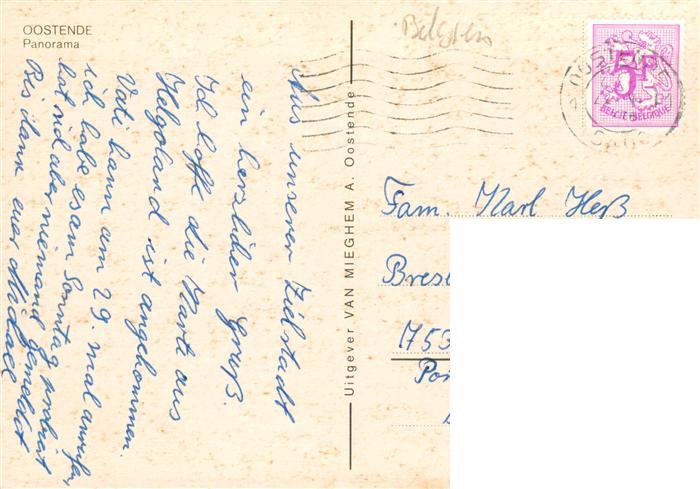 OOSTENDE
Panorama
Belgien
5F
BELGIE-BELGIQUE
OOSTENDE
Aus unserer Zielstadt
ein herzlicher Gruß.
Ich hoffe die Karte aus
Helgoland ist angekommen.
Vati kann am 29. mal anrufen,
ich habe es am Sonntag probiert
hat sich aber niemand gemeldet
Bis dann euer Michael
Uitgever VAN MIEGHEM A. Oostende
Fam. Karl Heß
Bres
1755
Por